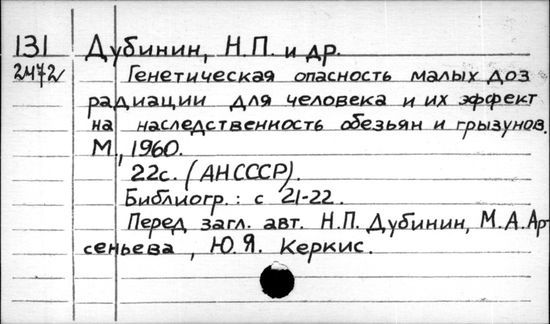 131 Дубинин, Н.П. и др.
2472 Генетическая опасность малых доз
радиации для человека и их эффект
на наследственность обезьян и грызунов.
М., 1960.
22с. (АНСССР).
Библиогр.: с 21-22.
Перед загл. авт. Н.П. Дубинин, М.А.Ар-
сеньева, Ю.Я. Керкис.